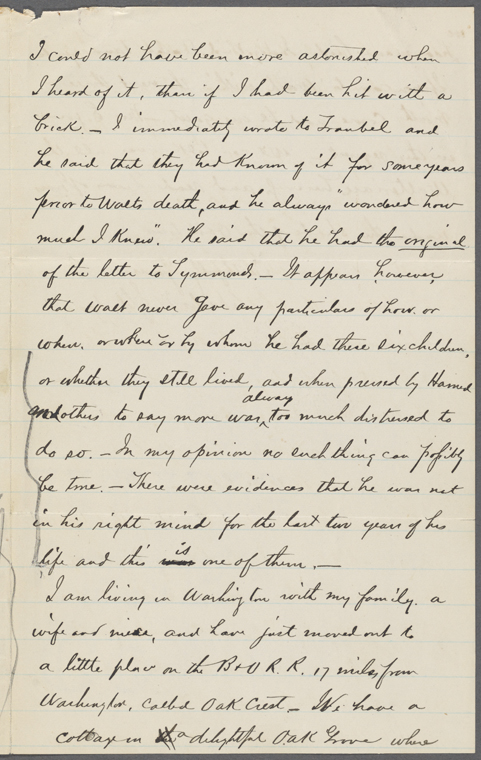 I could not have been more astonished when
I heard of it, than if I had been hit with a
brick. — I immediately wrote to Traubel and
he said that they had Known of it for some years
prior to Walts death, and he always "wondered how
much I Knew". He said that he had the original
of the letter to Symmonds. — It appears however,
that walt never gave any particulars of how. or
when. or where or by whom he had these six children,
or whether they still lived, and when pressed by Harned
and others to say more was always too much distressed to
do so. — In my opinion no such thing can possibly
be true. — There were evidences that he was not
in his right mind for the last two years of his
life and this was is one of them. —
I am living in Washington with my family. a
wife and niece, and have just moved out to
a little place on the B+O R.R. 17 miles from
Washington, called Oak Crest — We have a
cottage in a delightful Oak Grove where